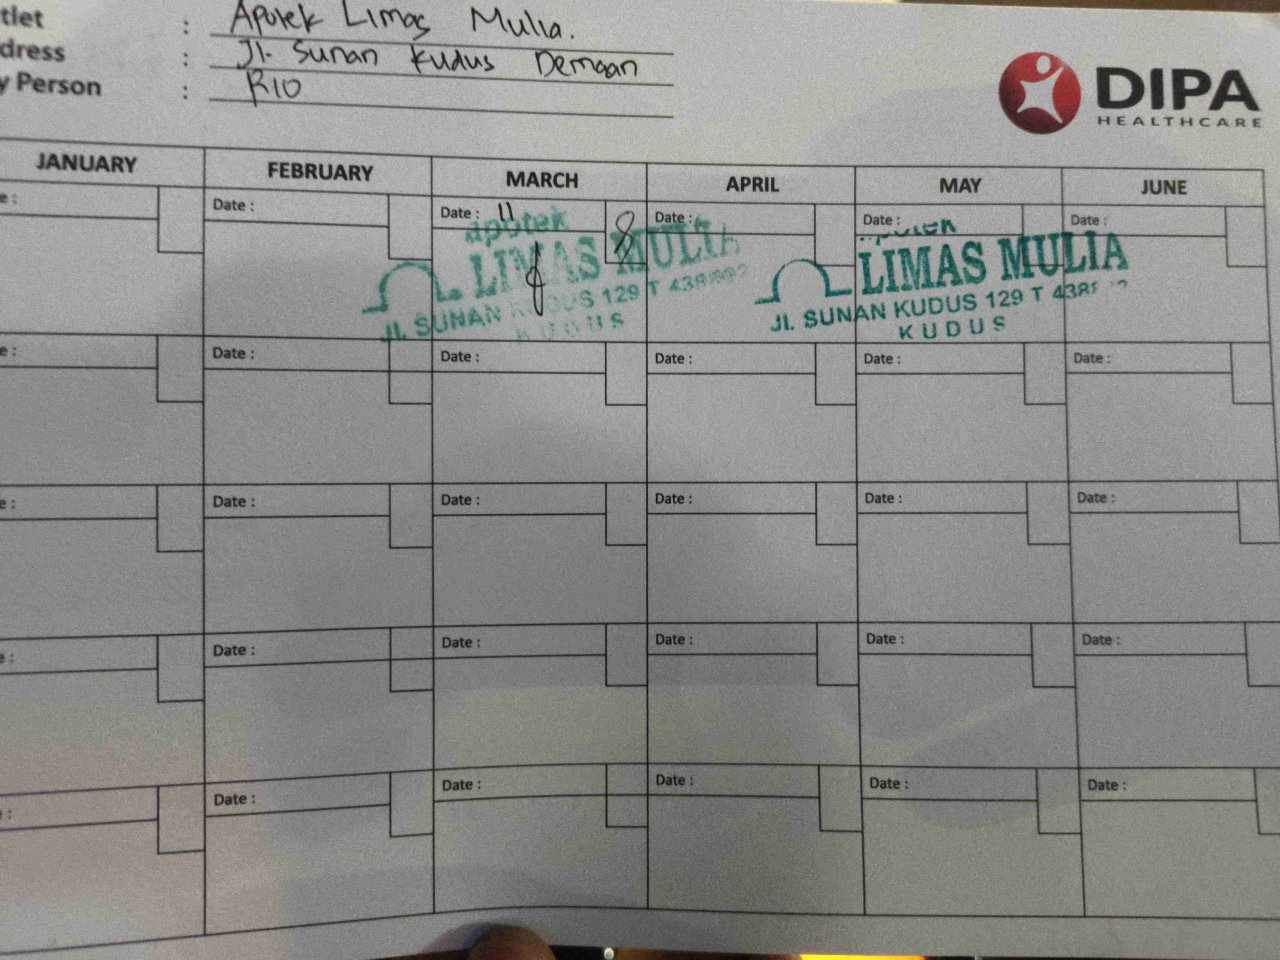 tlet : Apotek Limas Mulia.
dress : Jl. Sunan Kudus Demaan
y Person : RIO
DIPA
HEALTHCARE
JANUARY FEBRUARY MARCH APRIL MAY JUNE
e : Date : Date : 11 8 Date : Date : Date :
apotek
LIMAS MULIA
Jl. SUNAN KUDUS 129 T
KUDUS
LIMAS MULIA
Jl. SUNAN KUDUS 129 T
KUDUS
e : Date : Date : Date : Date : Date :
e : Date : Date : Date : Date : Date :
e : Date : Date : Date : Date : Date :
: Date : Date : Date : Date : Date :